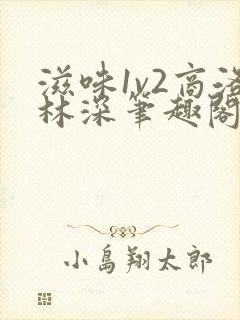 滋味1v2高洛
林深笔趣閣
小島翔太郎